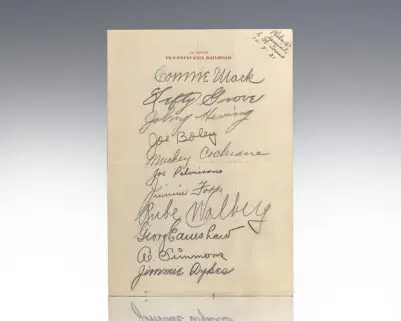 PENNSYLVANIA RAILROAD
Connie Mack
Lefty Grove
Johny Heving
Joe Boley
Mickey Cochrane
Joe Palmisano
Jimmie Foxx
Rube Walberg
George Earnshaw
A. Simmons
Jimmie Dykes